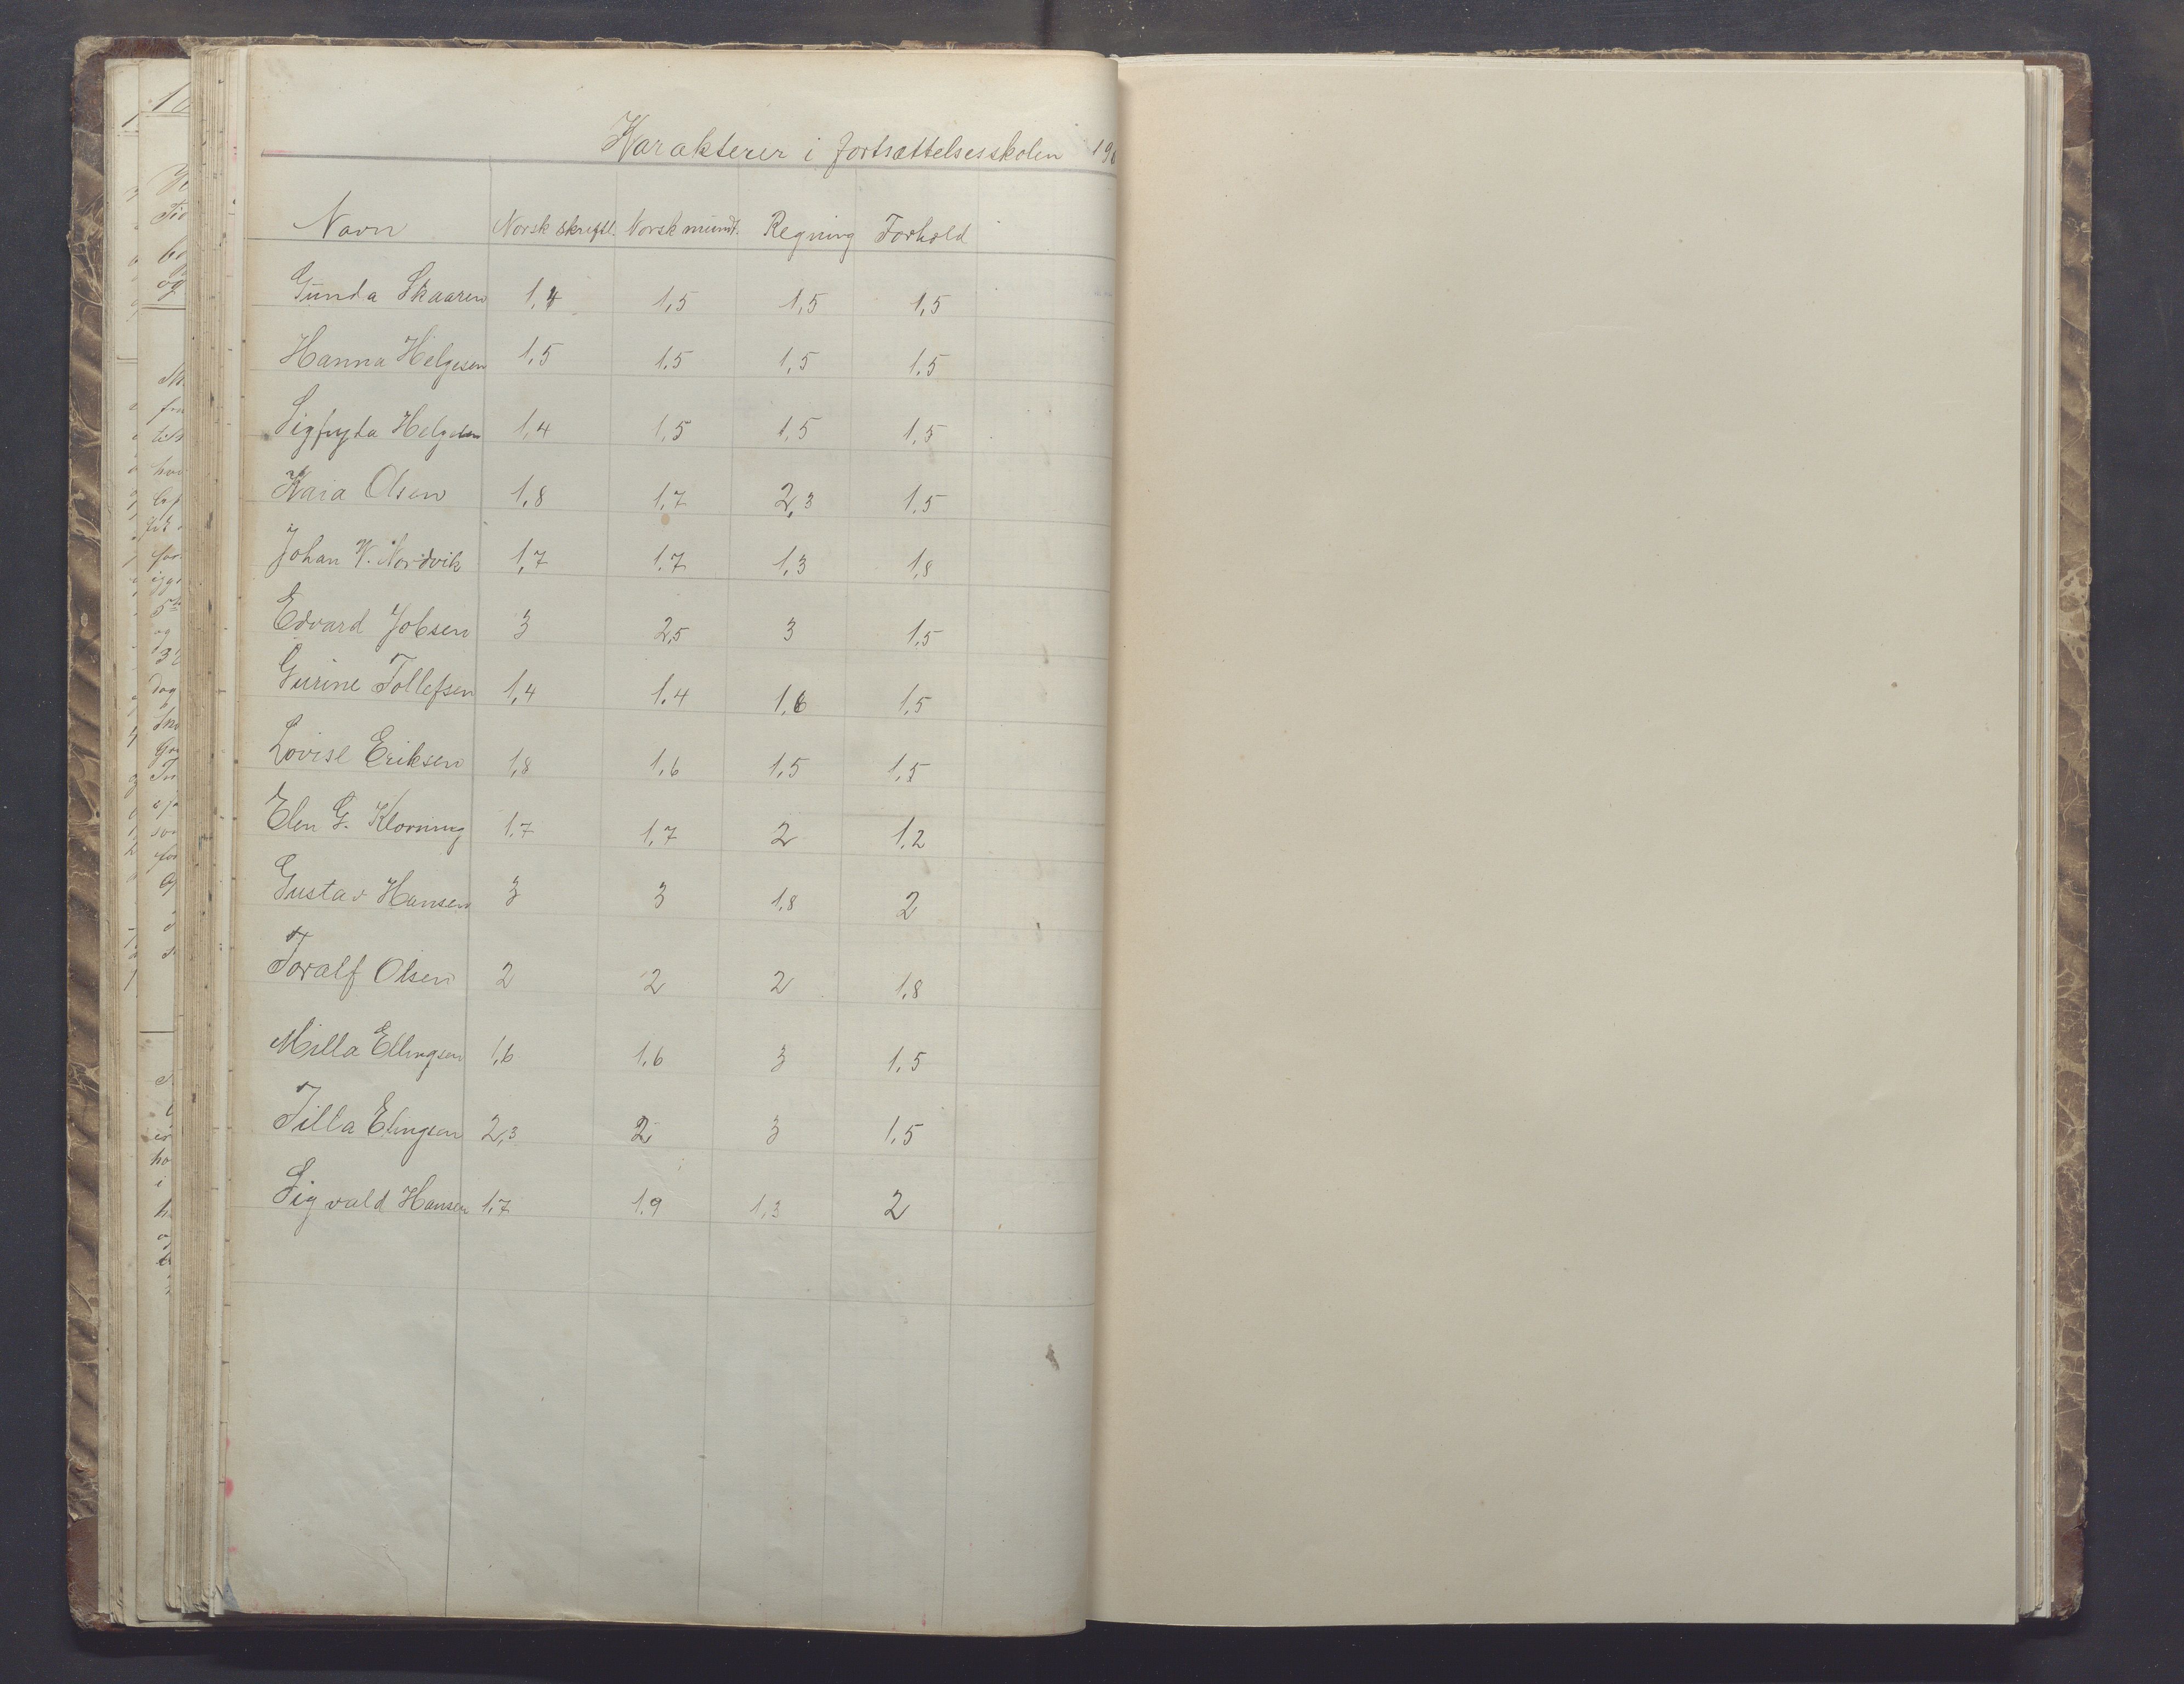 Karakterer i fortsættelsesskolen 190
Navn Norsk skriftl. Norsk mundt. Regning Forhold
Gunda Skaaren 1,4 1,5 1,5 1,5
Hanna Helgesen 1,5 1,5 1,5 1,5
Sigfryda Helgesen 1,4 1,5 1,5 1,5
Kaia Olsen 1,8 1,7 2,3 1,5
Johan V. Nordvik 1,7 1,7 1,3 1,8
Edvard Jobsen 3 2,5 3 1,5
Gurine Tollefsen 1,4 1,4 1,6 1,5
Lovise Eriksen 1,8 1,6 1,5 1,5
Elen G. Klorning 1,7 1,7 2 1,2
Gustav Hansen 3 3 1,8 2
Toralf Olsen 2 2 2 1,8
Milla Ellingsen 1,6 1,6 3 1,5
Tilla Elingsen 2,3 2 3 1,5
Sigvald Hansen 1,7 1,9 1,3 2